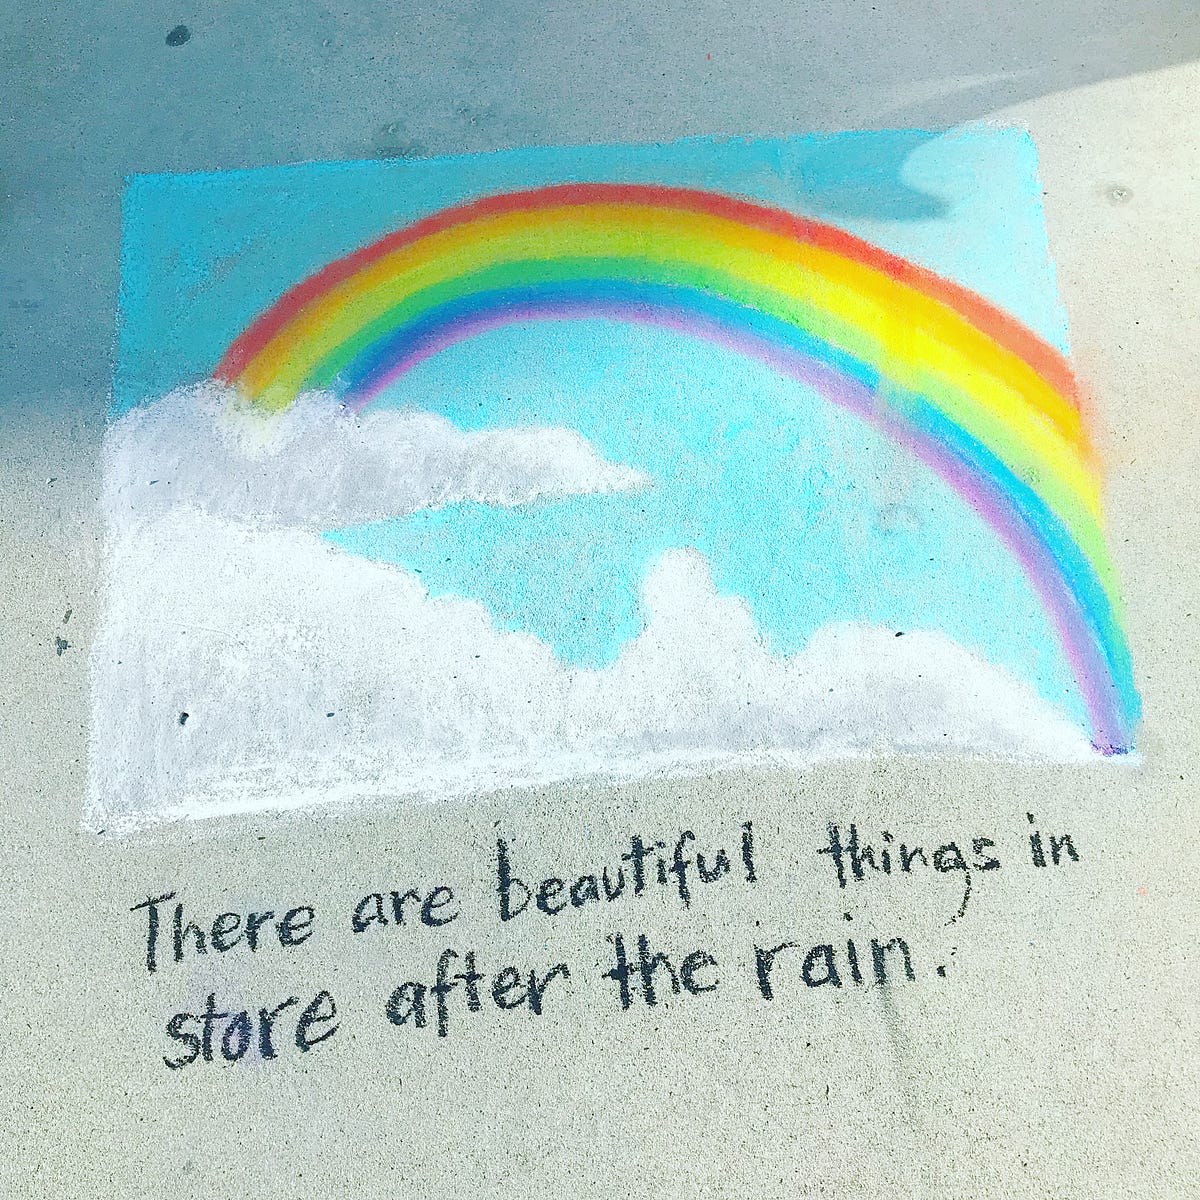 There are beautiful things in
store after the rain.